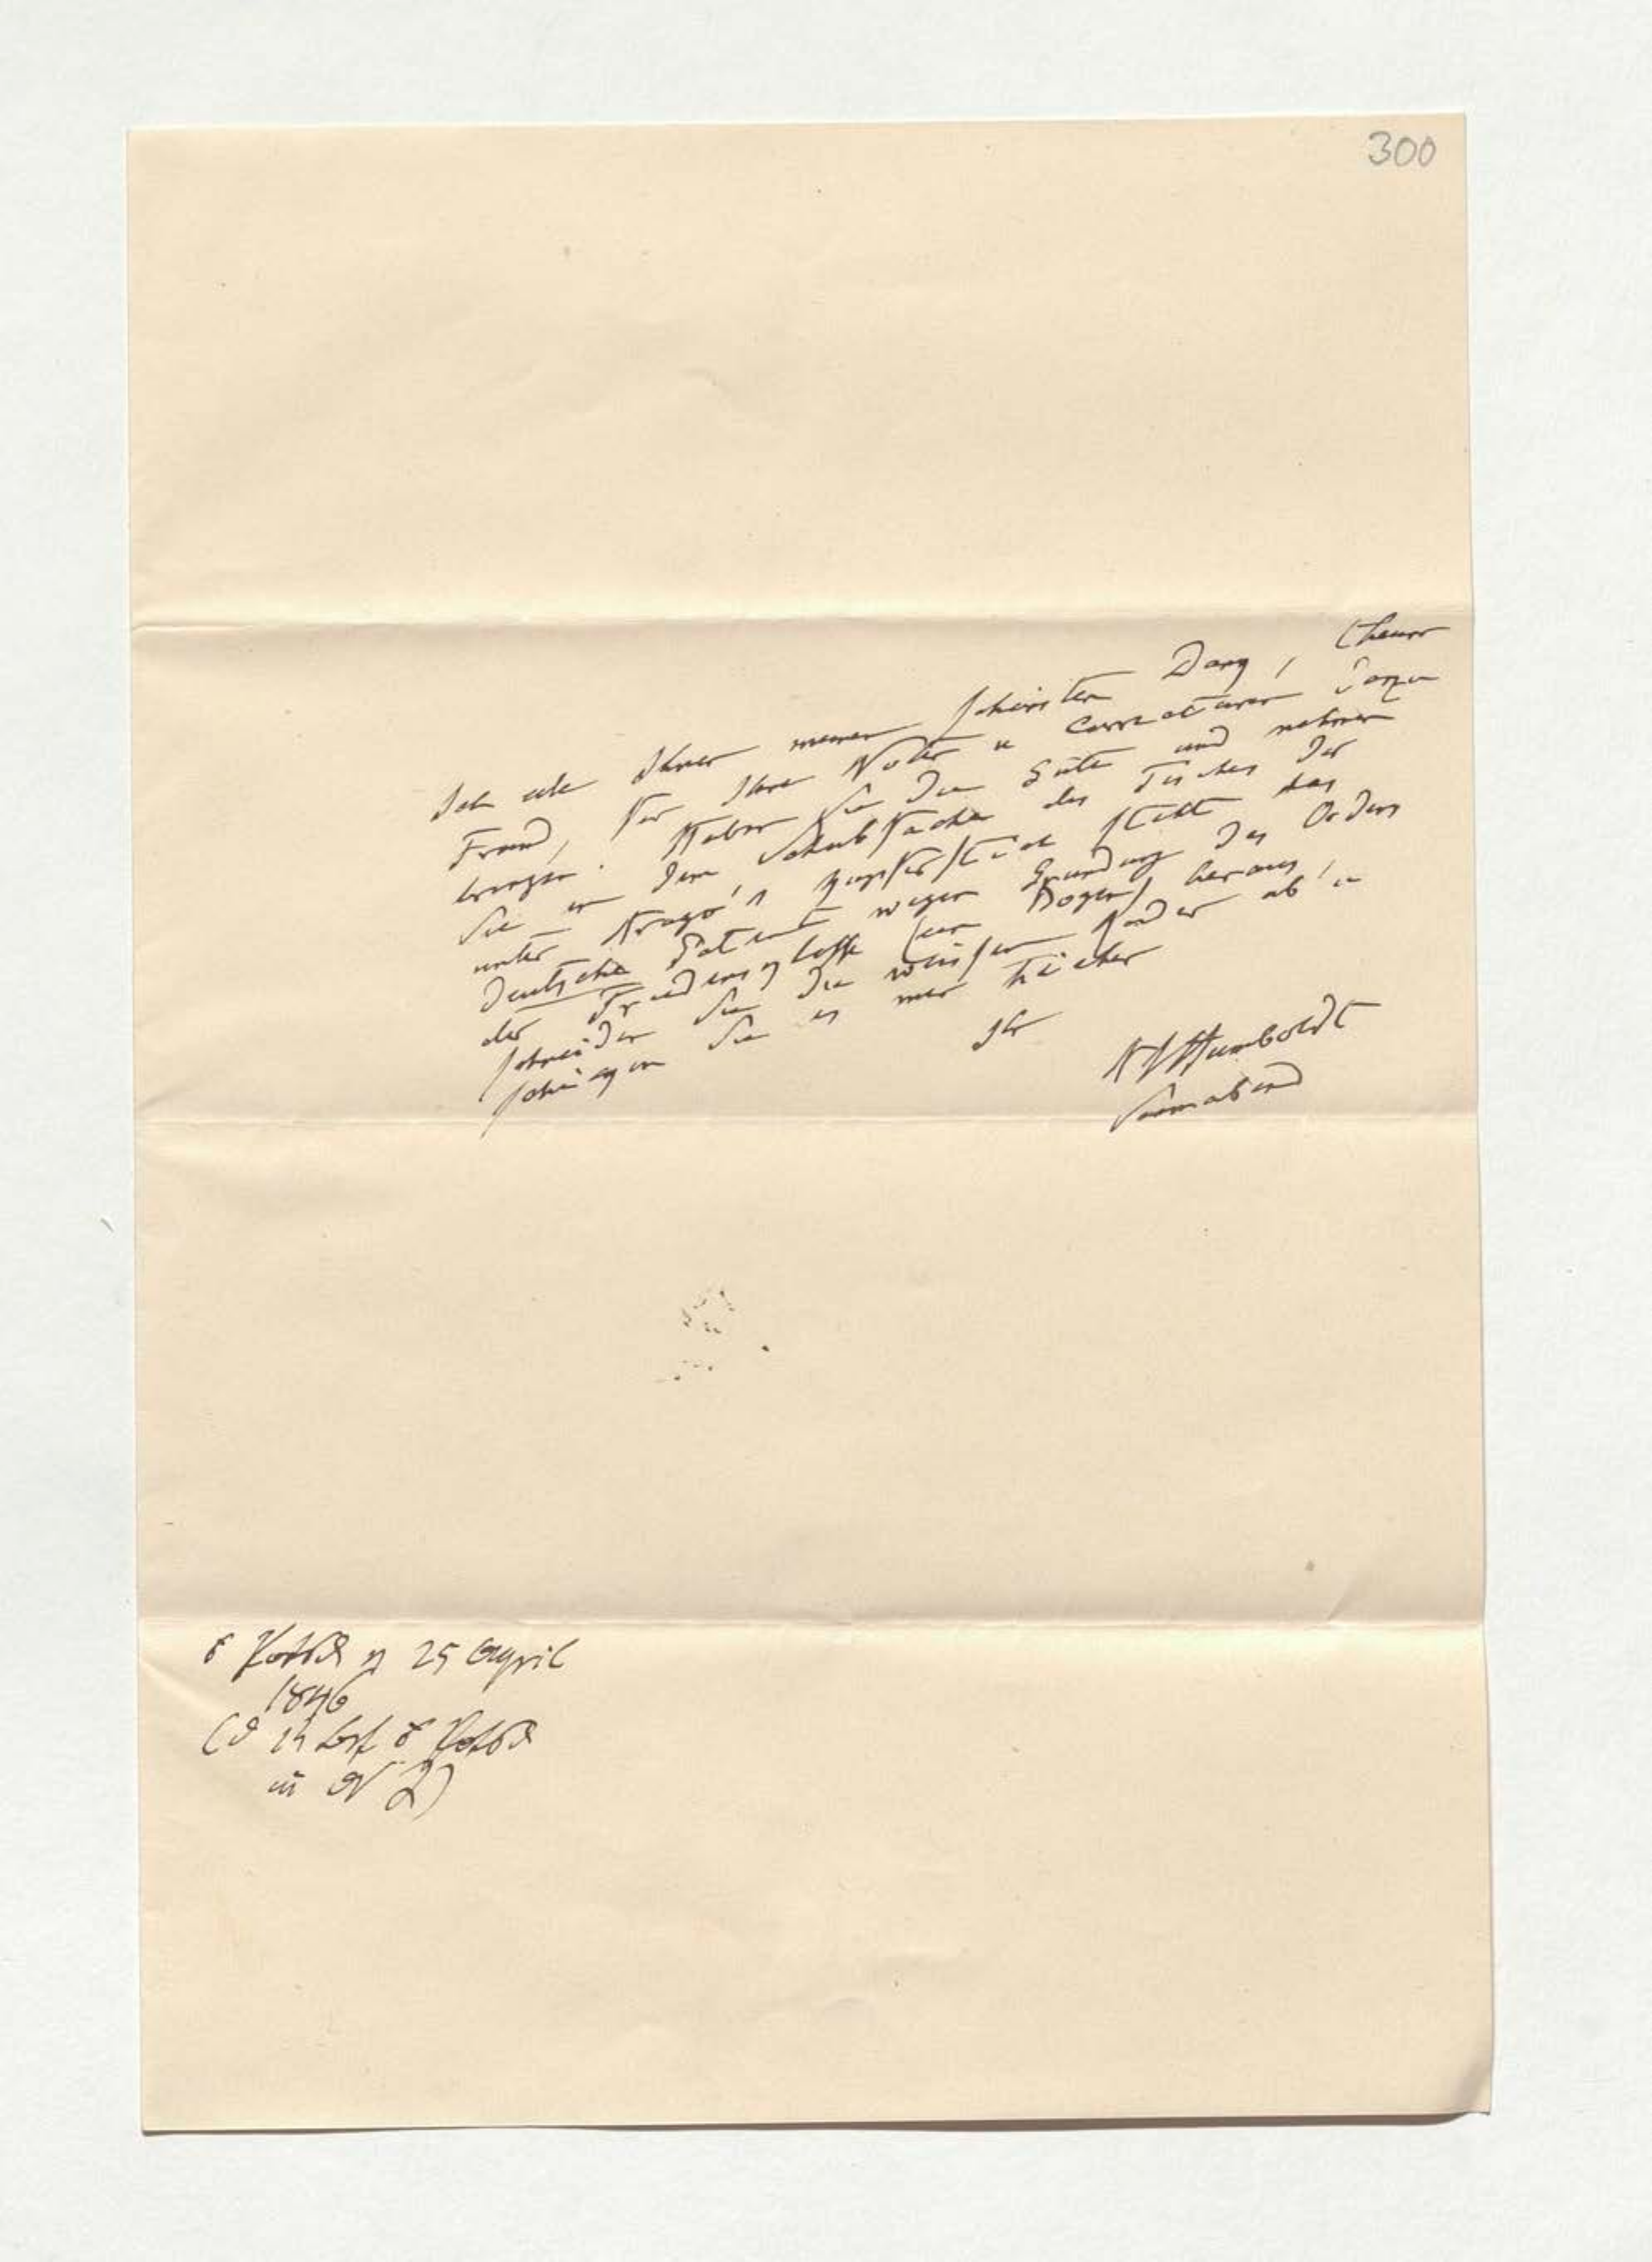 300
Ich eile Ihnen meinen schönsten Dank, theurer
Freund, für Ihre Noten u Correcturen darzu
bringen. Haben Sie die Güte und nehmen
Sie in dem Schubfache des Tisches der
unter Arago's Kupferstich steht das
deutsche Patent wegen Gründung des Ordens
der Friedensclasse (ein Bogen) heraus,
schneiden Sie die weissen Ränder ab u
schicken Sie es mir hieher
Ihr
AvHumboldt
Sonnabend
25 April
1846